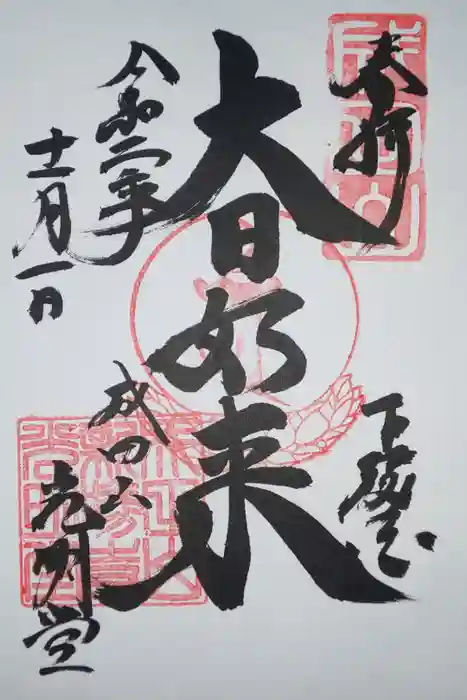 奉拝
下総国
大日如来
令和二年
十一月一日
成田山
光明堂
成田山